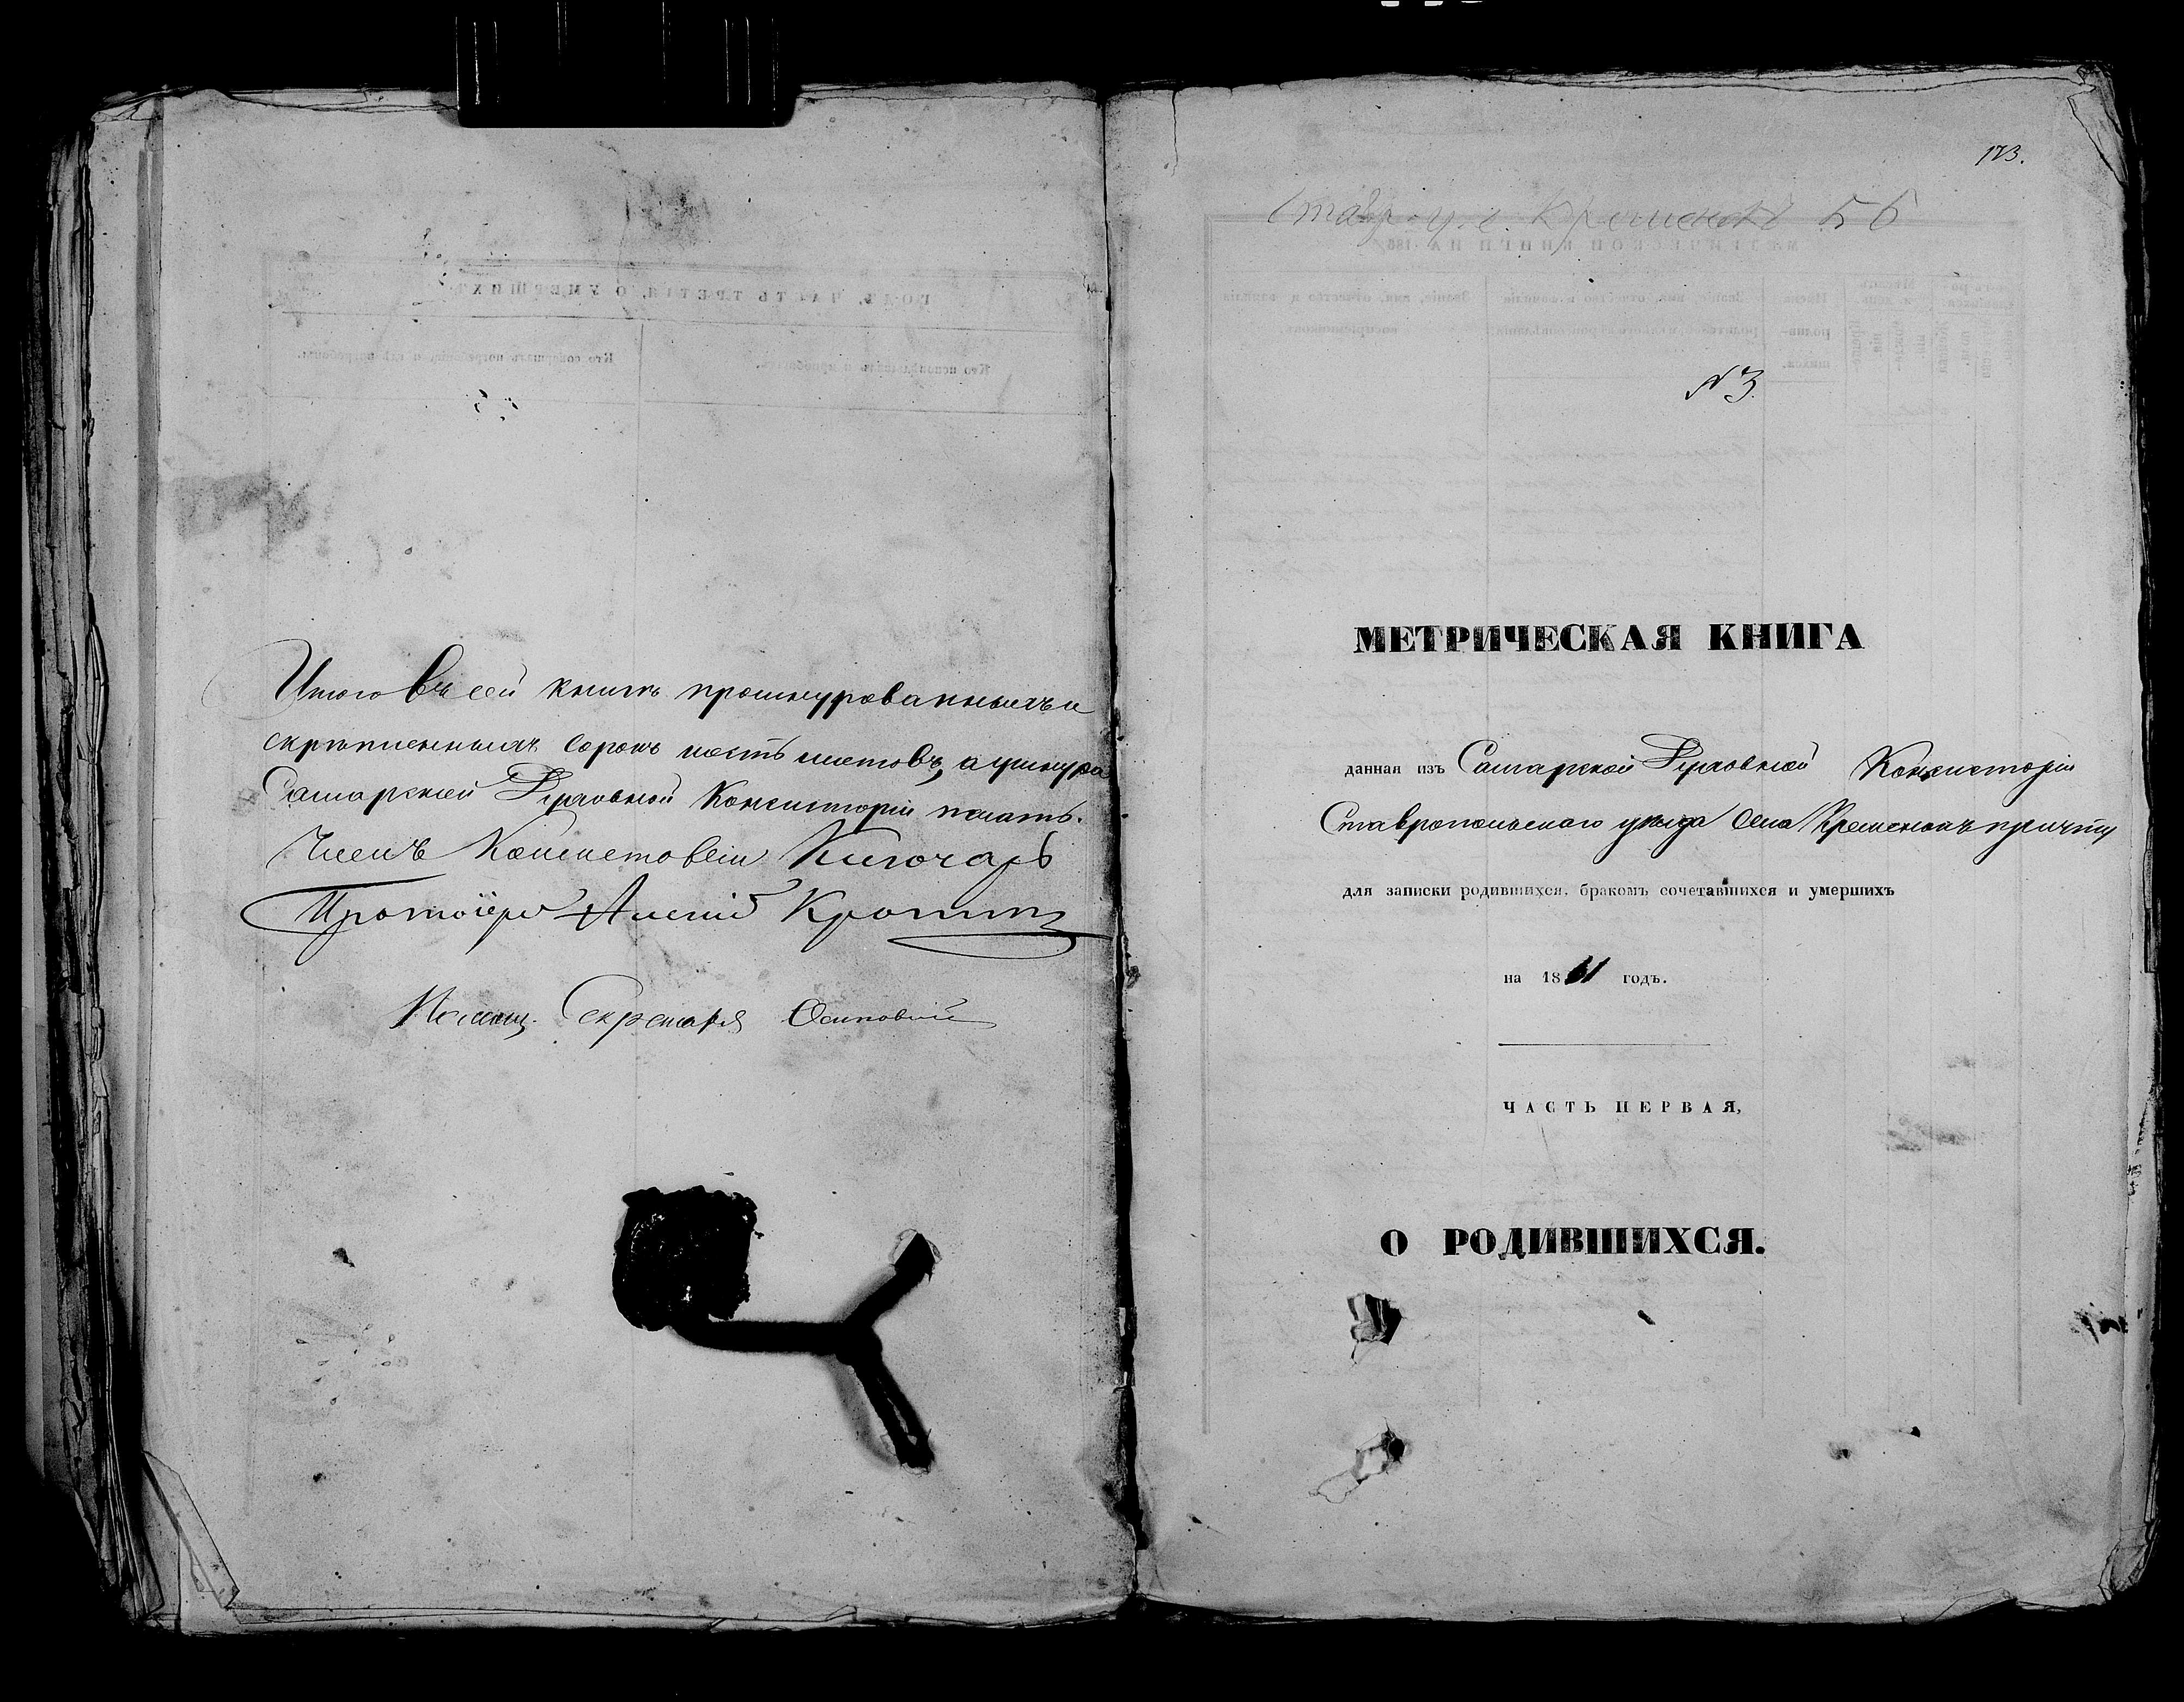 Итого въ сей книгѣ прошнурованныхъ и
скрѣпленныхъ сорокъ шесть листовъ, а у шнура
Самарской Духовной Консисторіи печать.
Членъ Консисторіи Ключарь
Протоіерей Кротковъ
Помощ. Секретаря
173.
Ставр. у. с. Кременки 56
№ 3.
МЕТРИЧЕСКАЯ КНИГА
данная изъ Самарской Духовной Консисторіи
Ставропольскаго уѣзда села Кременокъ причту
для записки родившихся, бракомъ сочетавшихся и умершихъ
на 1861 годъ.
ЧАСТЬ ПЕРВАЯ,
О РОДИВШИХСЯ.